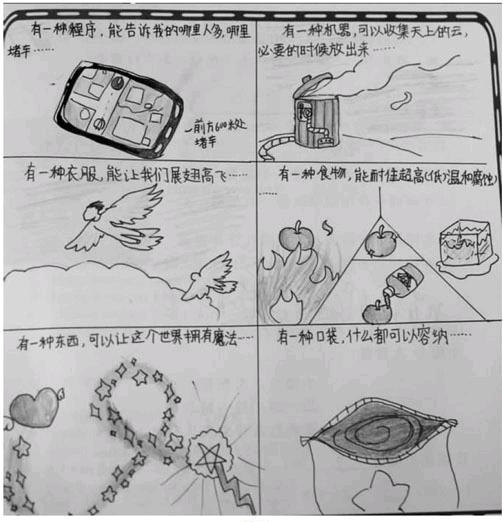 有一种程序,能告诉我的哪里人多,哪里
堵车……
前方600米处
堵车
有一种机器,可以收集天上的云,
必要的时候放出来……
有一种衣服,能让我们展翅高飞……
有一种食物,能耐住超高(低)温和腐蚀
……
有一种东西,可以让这个世界拥有魔法……
有一种口袋,什么都可以容纳……